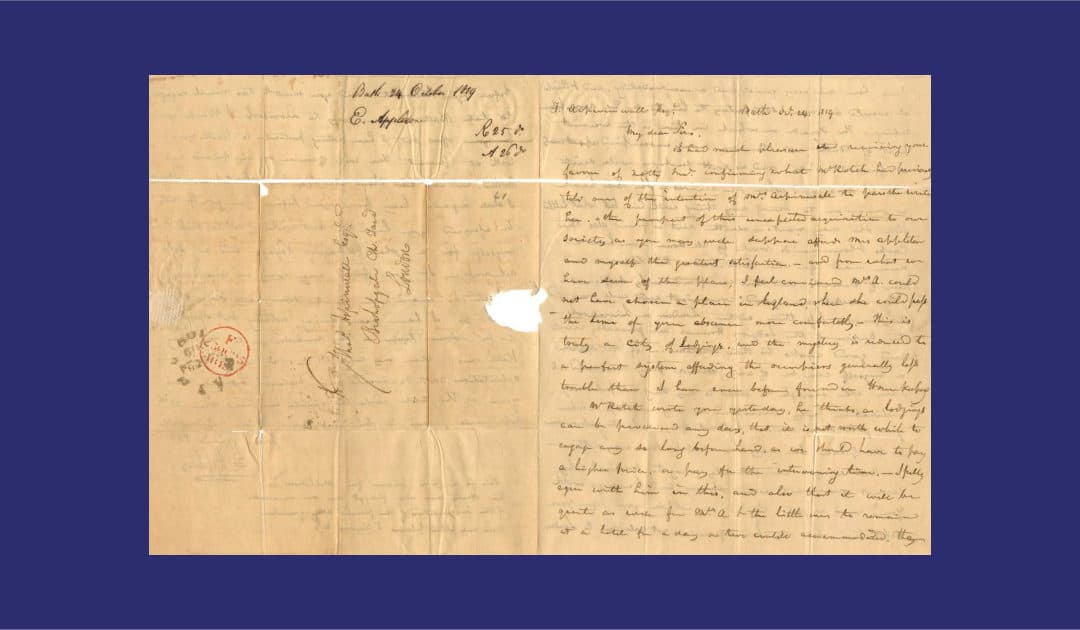 Bath 24 October 1819
E. Appleton
R 25 do
A 26 do
Bishopsgate Ch. Yard
London
T. Aspinwall Esq. Bath Oct. 24. 1819
My dear Sir,
I had much pleasure in receiving your
favour of confirming what Mr Rotch had previously
told me of the intention of Mrs. Aspinwall to pass the winter
here. The prospect of this unexpected acquisition to our
society, as you may well suppose affords Mrs Appleton
and myself the greatest satisfaction. — and from what we
have seen of the place, I feel convinced Mrs A. could
not have chosen a place in England where she could pass
the time of your absence more comfortably. — This is
truly a City of lodgings, and the mystery is reduced to
a perfect system, affording the occupiers generally less
trouble than I have ever before found in House keeping
Mr Rotch wrote you yesterday, he thinks, as lodgings
can be procured any day, that it is not worth while to
engage any so long before hand, as we should have to pay
a higher price, or pay for the intervening time. — I fully
agree with him in this, and also that it will be
quite as well for Mrs A & the little ones to remain
at a hotel for a day or two until accommodated. They